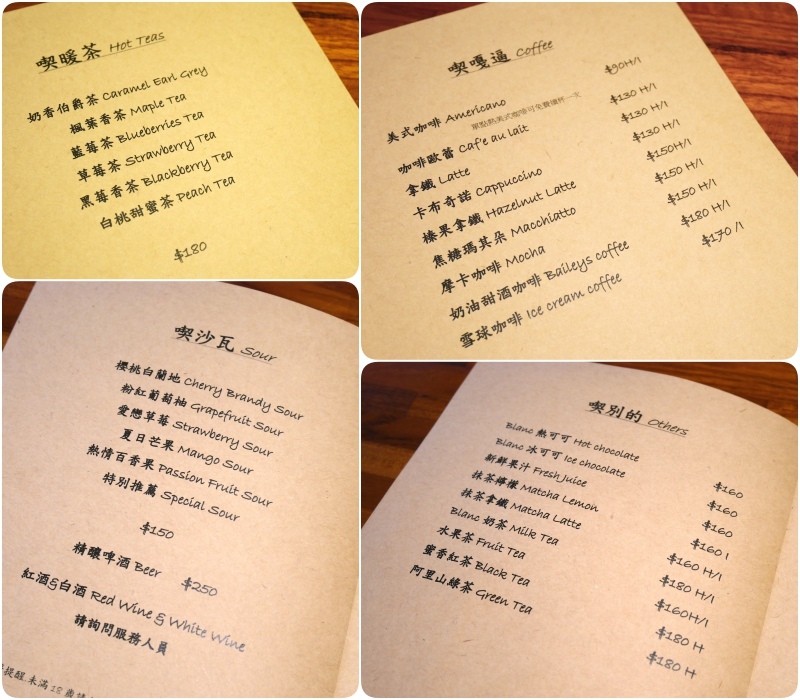 喫暖茶 Hot Teas
奶香伯爵茶 Caramel Earl Grey
楓葉香茶 Maple Tea
藍莓茶 Blueberries Tea
草莓茶 Strawberry Tea
黑莓香茶 Blackberry Tea
白桃甜蜜茶 Peach Tea
$180
喫嘎逼 Coffee
美式咖啡 Americano $90H/I
單點熱美式咖啡可免費續杯一次
咖啡歐蕾 Caf'e au lait $130 H/I
拿鐵 Latte $130 H/I
卡布奇諾 Cappuccino $130 H/I
榛果拿鐵 Hazelnut Latte $150H/I
焦糖瑪其朵 Macchiatto $150 H/I
摩卡咖啡 Mocha $150 H/I
奶油甜酒咖啡 Baileys coffee $180 H/I
雪球咖啡 Ice cream coffee $170 /I
喫沙瓦 Sour
櫻桃白蘭地 Cherry Brandy Sour
粉紅葡萄柚 Grapefruit Sour
愛戀草莓 Strawberry Sour
夏日芒果 Mango Sour
熱情百香果 Passion Fruit Sour
特別推薦 Special Sour
$150
精釀啤酒 Beer $250
紅酒&白酒 Red Wine & White Wine
請詢問服務人員
提醒 未滿 18 歲請
喫別的 Others
Blanc 熱可可 Hot chocolate $160
Blanc 冰可可 Ice chocolate $160
新鮮果汁 Fresh Juice $160
抹茶檸檬 Matcha Lemon $160 I
抹茶拿鐵 Matcha Latte $160 H/I
Blanc 奶茶 Milk Tea $180 H/I
水果茶 Fruit Tea $160H/I
蜜香紅茶 Black Tea $180 H
阿里山綠茶 Green Tea $180 H